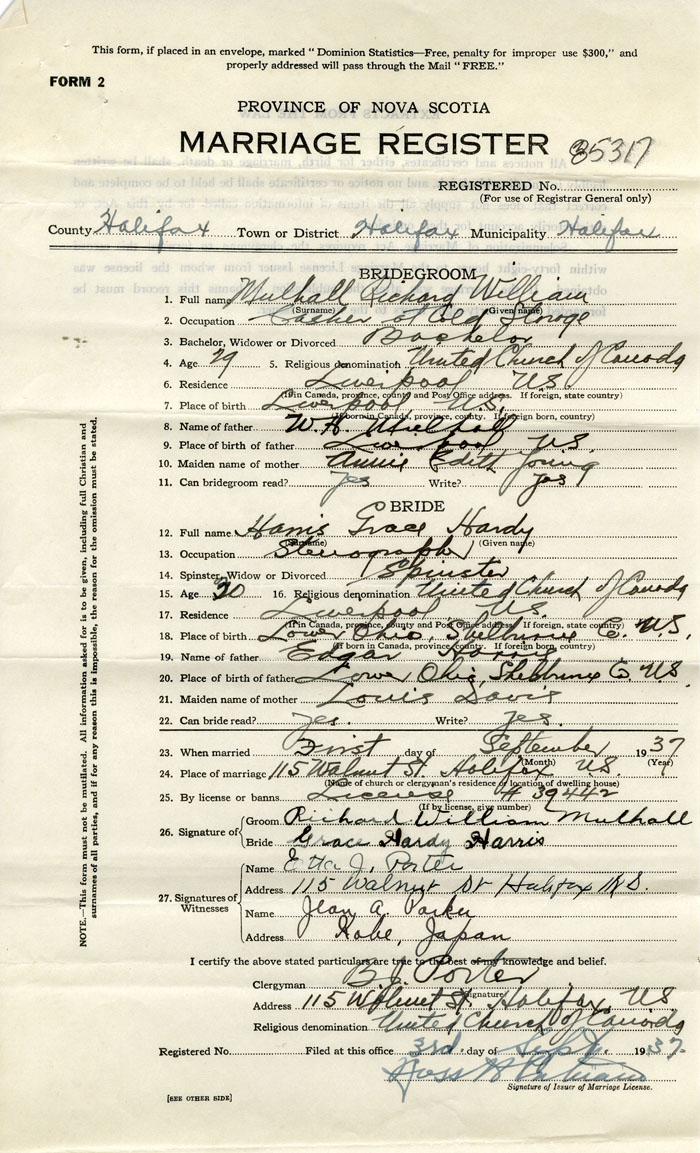 This form, if placed in an envelope, marked "Dominion Statistics—Free, penalty for improper use $300," and
properly addressed will pass through the Mail "FREE."
FORM 2
PROVINCE OF NOVA SCOTIA
MARRIAGE REGISTER 35317
REGISTERED No.
(For use of Registrar General only)
County Halifax Town or District Halifax Municipality Halifax
BRIDEGROOM
1. Full name Mulhall Richard William
(Surname) (Given name)
2. Occupation at Cold Storage
3. Bachelor, Widower or Divorced Bachelor
4. Age 29 5. Religious denomination United Church of Canada
6. Residence Liverpool N.S.
(If in Canada, province, county and Post Office address. If foreign, state country)
7. Place of birth Liverpool N.S.
(If born in Canada, province, county. If foreign born, country)
8. Name of father W. H. Mulhall
9. Place of birth of father Liverpool N.S.
10. Maiden name of mother Annie Edith Young
11. Can bridegroom read? yes Write? yes
BRIDE
12. Full name Harris Grace Hardy
(Surname) (Given name)
13. Occupation Stenographer
14. Spinster, Widow or Divorced Spinster
15. Age 20 16. Religious denomination United Church of Canada
17. Residence Liverpool N.S.
(If in Canada, province, county and Post Office address. If foreign, state country)
18. Place of birth Lower Ohio, Shelburne Co. N.S.
(If born in Canada, province, county. If foreign born, country)
19. Name of father Edgar Harris
20. Place of birth of father Lower Ohio, Shelburne Co N.S.
21. Maiden name of mother Louis Davis
22. Can bride read? yes. Write? yes.
23. When married First day of September 1937
(Month) (Year)
24. Place of marriage 115 Walnut St. Halifax N.S.
(Name of church or clergyman's residence or location of dwelling house)
25. By license or banns License # 39442
(If by license, give number)
26. Signature of
Groom Richard William Mulhall
Bride Grace Hardy Harris
27. Signatures of Witnesses
Name Etta J. Porter
Address 115 Walnut St Halifax N.S.
Name Jean A. Parker
Address Kobe, Japan
I certify the above stated particulars are true to the best of my knowledge and belief.
Clergyman B. J. Porter
(Signature)
Address 115 Walnut St. Halifax, N.S
Religious denomination United Church of Canada
Registered No. Filed at this office 3rd day of Sept. 1937.
Ross
Signature of Issuer of Marriage License.
[SEE OTHER SIDE]
NOTE.—This form must not be mutilated. All information asked for is to be given, including full Christian and
surnames of all parties, and if for any reason this is impossible, the reason for the omission must be stated.